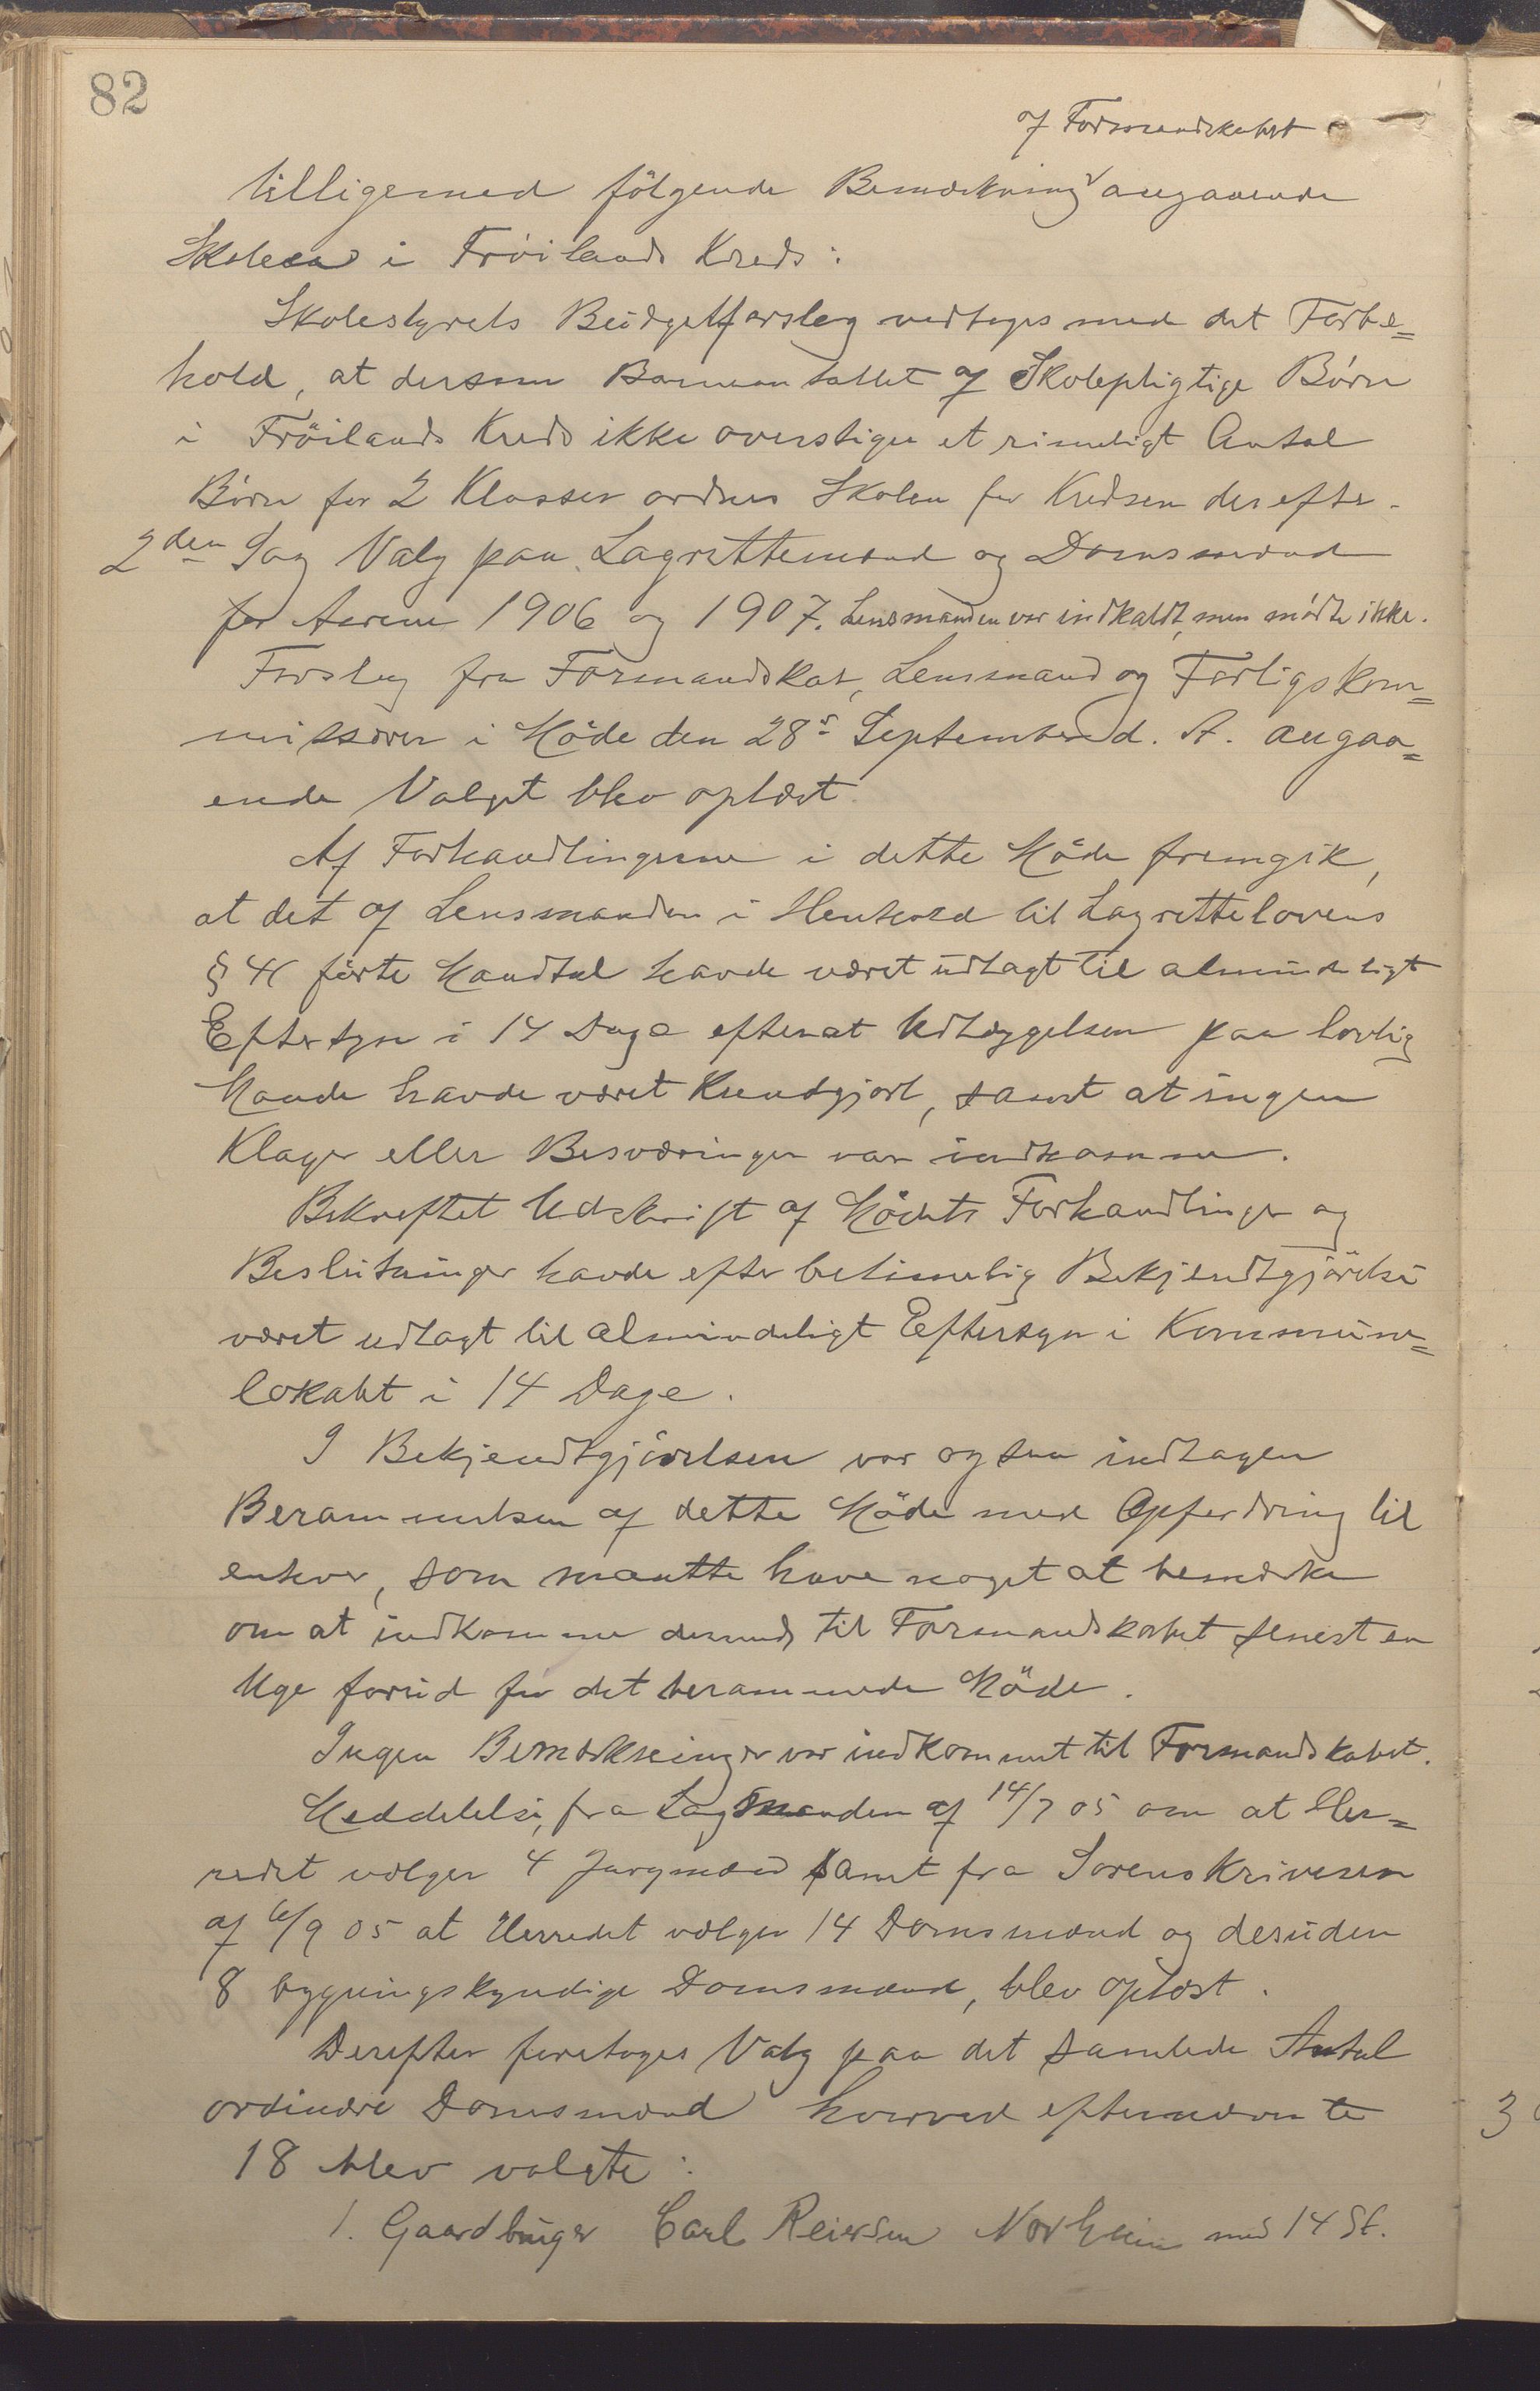 82
af Formandskabet
tilligemed følgende Bemærkning angaaende
Skolen i Fröilands Kreds:
Skolestyrets Budgetforslag vedtages med det Forbe=
hold, at dersom Barneantallet af Skolepligtige Børn
i Fröilands Kreds ikke overstiger et rimeligt Antal
Børn for 2 Klasser ordnes Skolen for Kredsen derefter.
2den Sag Valg paa Lagrettemænd og Domsmænd
for Aarene 1906 og 1907. Lensmanden var indkaldt, men mødte ikke.
Forslag fra Formandskab, Lensmand og Forligskom=
missærer i Möde den 28s September d. A. angaa=
ende Valget blev oplæst.
Af Forhandlingerne i dette Möde fremgik,
at det af Lensmanden i Henhold til Lagrettelovens
§ 41 førte Mandtal havde været udlagt til almindeligt
Eftersyn i 14 Dage efterat Udlæggelsen paa lovlig
Maade havde været Kundgjort, samt at ingen
Klager eller Besværinger var indkomne.
Bekræftet Udskrift af Mödets Forhandlinger og
Beslutninger havde efter betimelig Bekjendtgjörelse
været udlagt til almindeligt Eftersyn i Kommune=
lokalet i 14 Dage.
I Bekjendtgjörelsen var ogsaa indtagen
Berammelsen af dette Möde med Opfordring til
enhver, som maatte have noget at bemærke
om at indkomme dermed til Formandskabet senest en
Uge forud for det berammede Möde.
Ingen Bemærkninger var indkommet til Formandskabet.
Meddelelse, fra Lagmanden af 14/7 05 om at Her=
redet vælger 4 Jurymænd samt fra Sorenskriveren
af 6/9 05 at Herredet vælger 14 Domsmænd og desuden
8 bygningskyndige Domsmænd, blev oplæst.
Derefter foretoges Valg paa det samlede Antal
ordinære Domsmænd hvorved efternævnte
18 blev valgte:
1. Gaardbruger Carl Reiersen Norheim med 14 St.
3